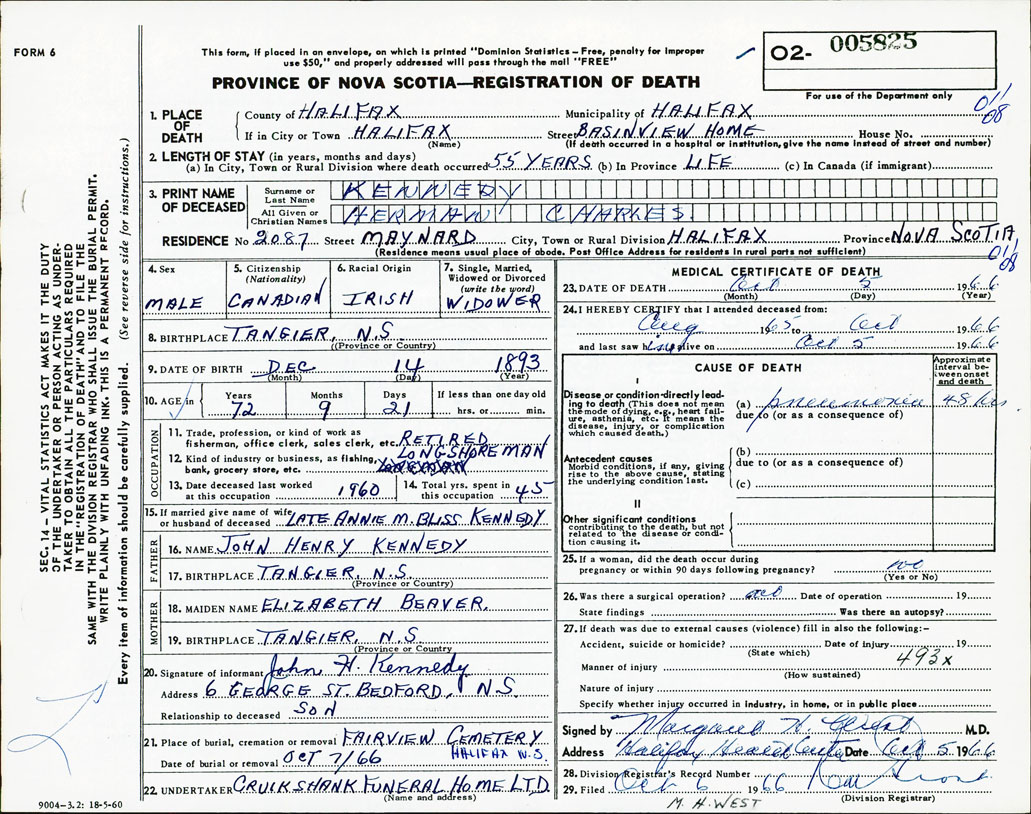 FORM 6
This form, if placed in an envelope, on which is printed "Dominion Statistics – Free, penalty for improper
use $50," and properly addressed will pass through the mail "FREE"
PROVINCE OF NOVA SCOTIA—REGISTRATION OF DEATH
02- 005825
For use of the Department only
1. PLACE OF DEATH
County of HALIFAX Municipality of HALIFAX
011
08
If in City or Town HALIFAX Street BASINVIEW HOME House No.
(Name) (If death occurred in a hospital or institution, give the name instead of street and number)
2. LENGTH OF STAY (in years, months and days)
(a) In City, Town or Rural Division where death occurred 55 YEARS (b) In Province LIFE (c) In Canada (if immigrant)
3. PRINT NAME OF DECEASED
Surname or Last Name KENNEDY
All Given or Christian Names HERMAN CHARLES.
RESIDENCE No 2087 Street MAYNARD City, Town or Rural Division HALIFAX Province NOVA SCOTIA
(Residence means usual place of abode. Post Office Address for residents in rural parts not sufficient)
011
08
4. Sex MALE
5. Citizenship (Nationality) CANADIAN
6. Racial Origin IRISH
7. Single, Married, Widowed or Divorced (write the word) WIDOWER
8. BIRTHPLACE TANGIER, N.S
(Province or Country)
9. DATE OF BIRTH DEC 14 1893
(Month) (Day) (Year)
10. AGE in Years 72 Months 9 Days 21 If less than one day old hrs. or min.
OCCUPATION
11. Trade, profession, or kind of work as
fisherman, office clerk, sales clerk, etc. RETIRED
LONGSHOREMAN
12. Kind of industry or business, as fishing,
bank, grocery store, etc.
13. Date deceased last worked at this occupation 1960
14. Total yrs. spent in this occupation 45
15. If married give name of wife
or husband of deceased LATE ANNIE M. BLISS KENNEDY
FATHER
16. NAME JOHN HENRY KENNEDY
17. BIRTHPLACE TANGIER, N.S.
(Province or Country)
MOTHER
18. MAIDEN NAME ELIZABETH BEAVER.
19. BIRTHPLACE TANGIER, N.S.
(Province or Country)
20. Signature of informant John H. Kennedy
Address 6 GEORGE ST. BEDFORD, N.S.
Relationship to deceased SON
21. Place of burial, cremation or removal FAIRVIEW CEMETERY
Date of burial or removal OCT 7/66 HALIFAX N.S.
22. UNDERTAKER CRUIKSHANK FUNERAL HOME LTD.
(Name and address)
MEDICAL CERTIFICATE OF DEATH
23. DATE OF DEATH Oct 5 1966
(Month) (Day) (Year)
24. I HEREBY CERTIFY that I attended deceased from:
Aug 1965 to Oct 1966
and last saw him alive on Oct 5 1966
CAUSE OF DEATH
Approximate interval between onset and death
I
Disease or condition directly leading to death (This does not mean the mode of dying, e.g., heart failure, asthenia, etc. It means the disease, injury, or complication which caused death.)
(a) pneumonia 48 hrs
due to (or as a consequence of)
Antecedent causes
Morbid conditions, if any, giving rise to the above cause, stating the underlying condition last.
(b)
due to (or as a consequence of)
(c)
II
Other significant conditions
contributing to the death, but not related to the disease or condition causing it.
25. If a woman, did the death occur during
pregnancy or within 90 days following pregnancy? no
(Yes or No)
26. Was there a surgical operation? Date of operation 19
State findings Was there an autopsy?
27. If death was due to external causes (violence) fill in also the following:–
Accident, suicide or homicide? Date of injury 19
(State which)
493x
Manner of injury
(How sustained)
Nature of injury
Specify whether injury occurred in industry, in home, or in public place
Signed by M.D.
Address Halifax Health Centre Date Oct 5 1966
28. Division Registrar's Record Number
29. Filed Oct 6 1966
(Division Registrar)
M. H. WEST
SEC. 14 – VITAL STATISTICS ACT MAKES IT THE DUTY
OF THE UNDERTAKER OR PERSON ACTING AS UNDER-
TAKER TO OBTAIN ALL THE PARTICULARS REQUIRED
IN THE "REGISTRATION OF DEATH" AND TO FILE THE
SAME WITH THE DIVISION REGISTRAR WHO SHALL ISSUE THE BURIAL PERMIT.
WRITE PLAINLY WITH UNFADING INK. THIS IS A PERMANENT RECORD.
Every item of information should be carefully supplied. (See reverse side for instructions.)
9004–3.2: 18-5-60